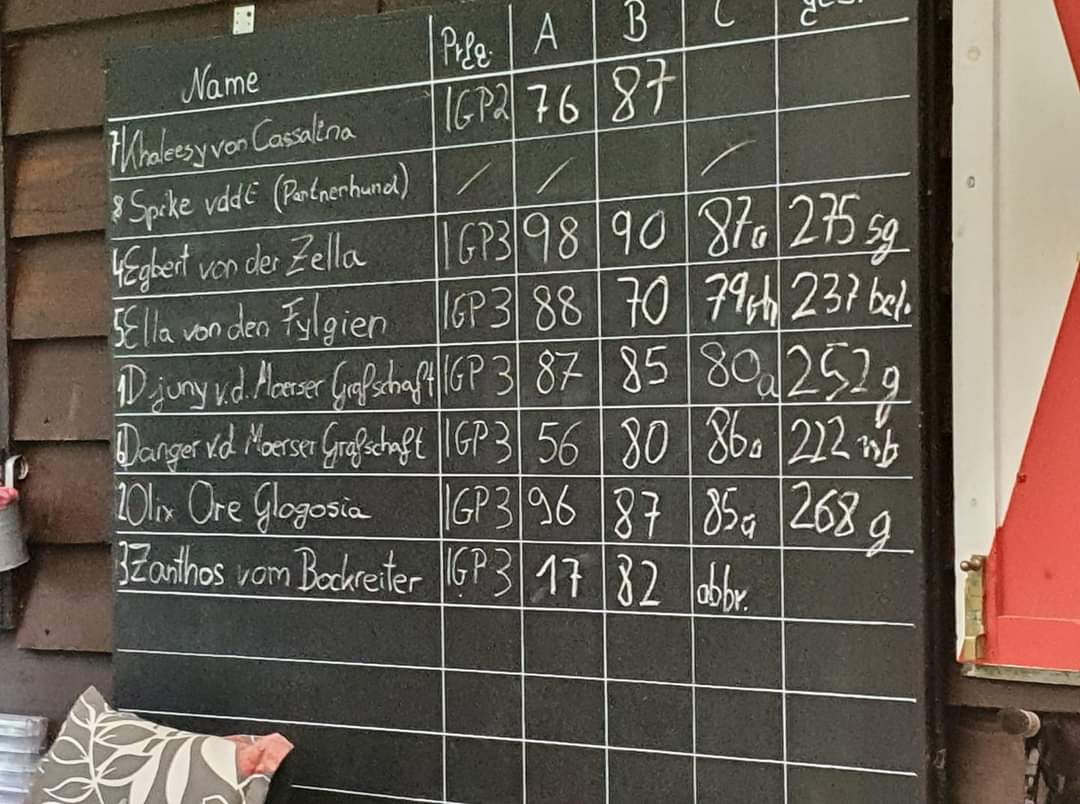 Name Prfg. A B C ges.
7 Khaleesy von Cassalina IGP2 76 87
8 Spike vddE (Partnerhund) / / /
4 Egbert von der Zella IGP3 98 90 87a 275 sg
5 Ella von den Fylgien IGP3 88 70 79 237 bef.
1 Djuny v.d. Moerser Grafschaft IGP3 87 85 80a 252 g
6 Danger v.d Moerser Grafschaft IGP3 56 80 86a 222 nb
2 Olix Ore Glogosia IGP3 96 87 85a 268 g
3 Zanthos vom Bockreiter IGP3 17 82 abbr.